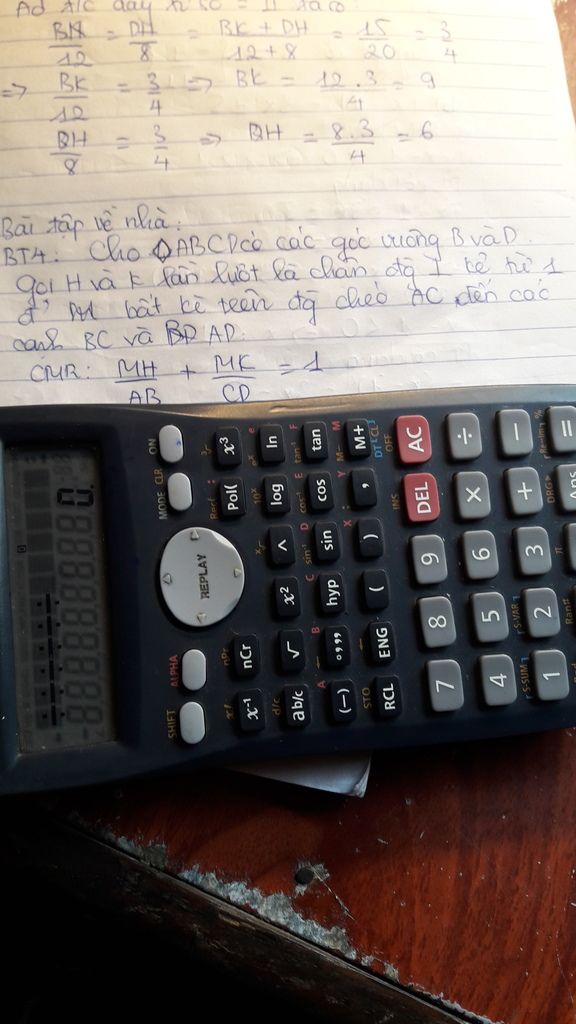 Ad t/c dãy tỉ số = ta có:
BK/12 = DH/8 = BK + DH/12 + 8 = 15/20 = 3/4
=> BK/12 = 3/4 => BK = 12.3/4 = 9
DH/8 = 3/4 => DH = 8.3/4 = 6
Bài tập về nhà:
BT4: Cho ◇ABCD có các góc vuông B và D.
gọi H và K lần lượt là chân đg ⊥ kẻ từ 1
đ' M bất kì trên đg chéo AC đến các
cạnh BC và AD.
CMR: MH/AB + MK/CD = 1
0.
ON
MODE CLR
ALPHA
SHIFT
REPLAY
x³ ln tan M+
Pol( log cos ,
^ sin )
x² hyp (
nCr √ °,,, ENG
x⁻¹ ab/c (-) RCL
AC ÷ − =
DEL × + Ans
9 6 3
8 5 2
7 4 1